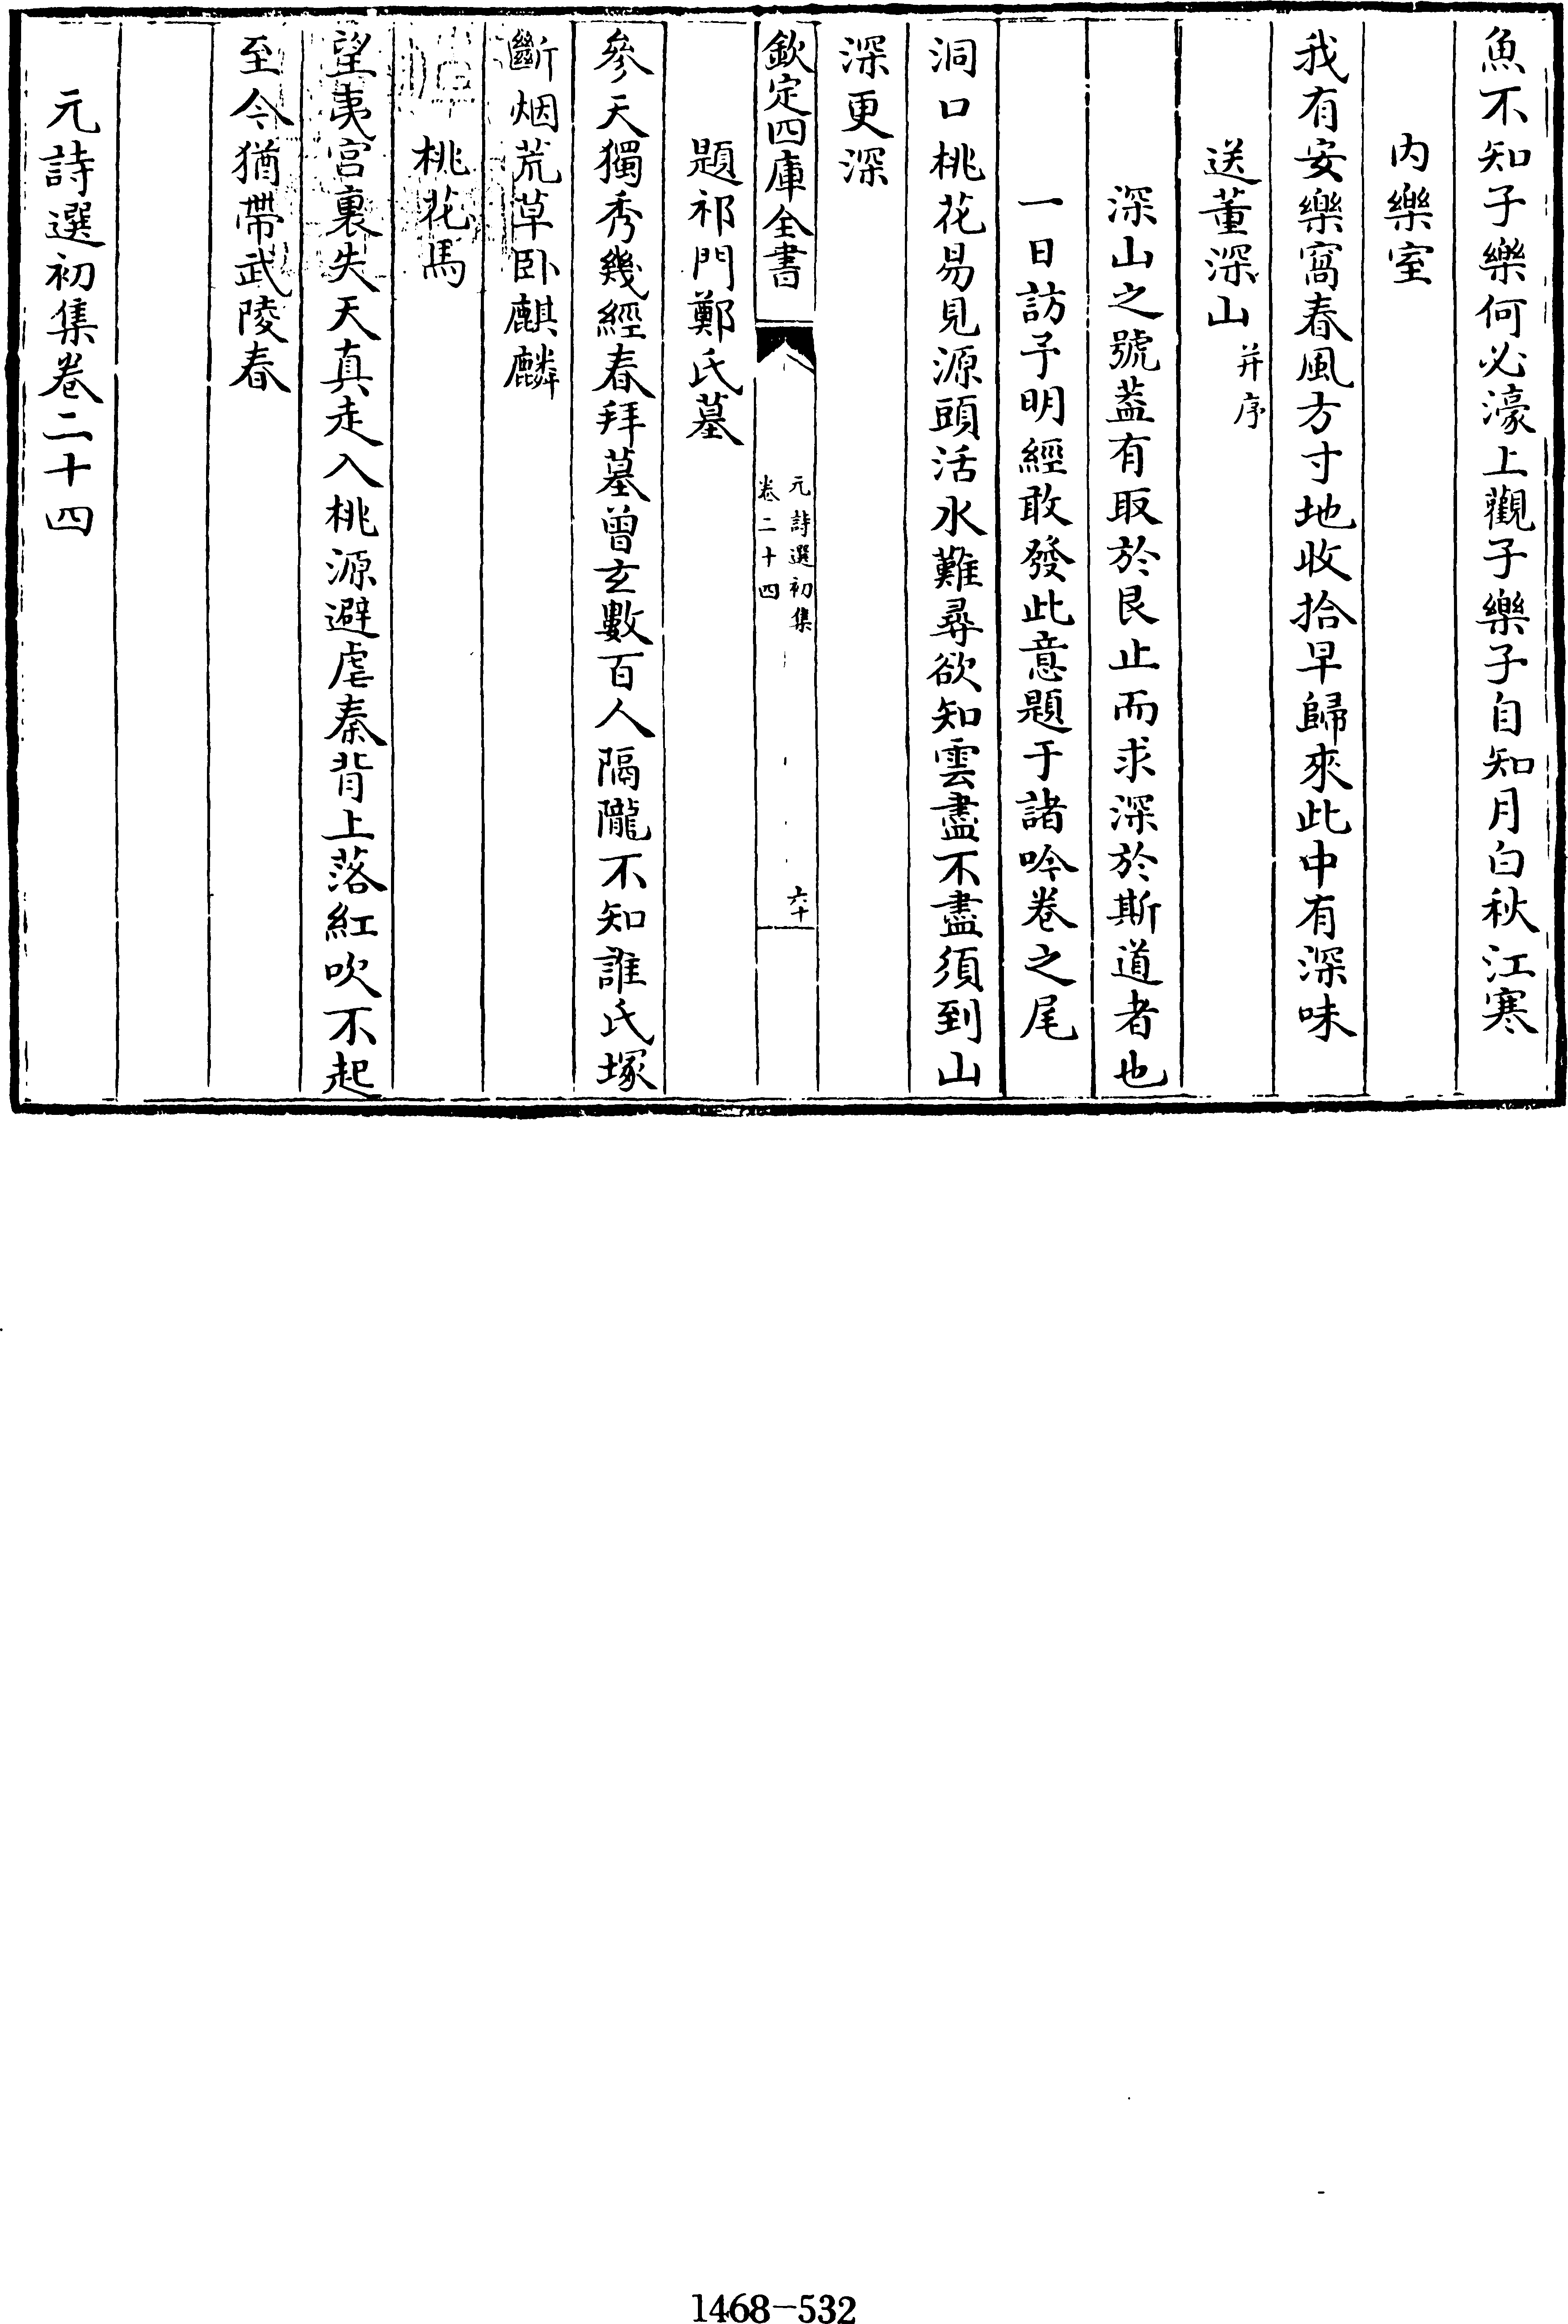 魚不知子樂何必濠上觀子樂子自知月白秋江寒
内樂室
我有安樂窩春風方寸地收拾早歸來此中有深味
送董深山并序
深山之號葢有取於艮止而求深於斯道者也
一日訪予明經敢發此意題于諸吟卷之尾
洞口桃花易見源頭活水難尋欲知雲盡不盡須到山
深更深
欽定四庫全書
元詩選初集
卷二十四
六十
題祁門鄭氏墓
參天獨秀幾經春拜墓曾玄數百人隔隴不知誰氏塚
斷烟荒草卧麒麟
桃花馬
望夷宫裏失天真走入桃源避虐秦背上落紅吹不起
至今猶帶武陵春
元詩選初集卷二十四
1468-532